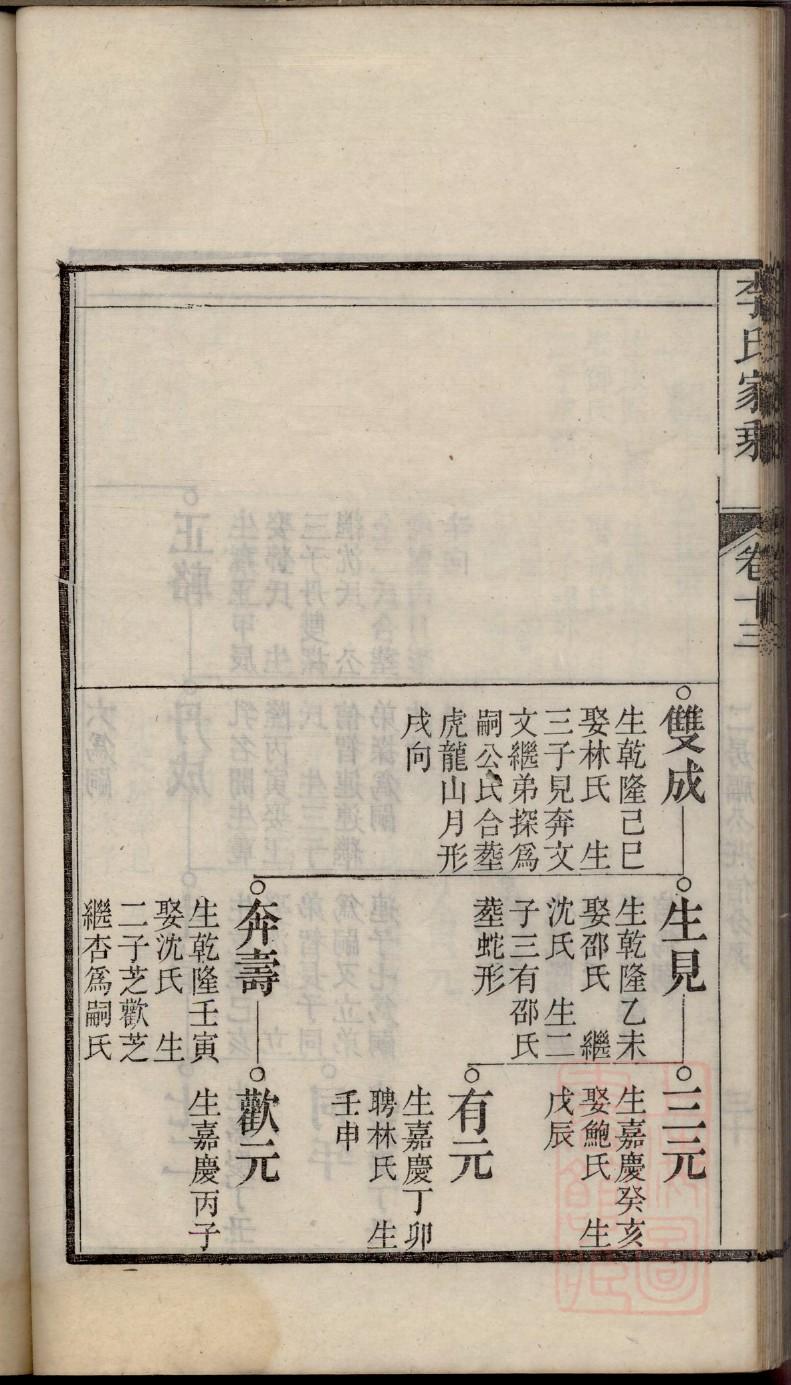 李氏家乘
卷十三
雙成
生乾隆己巳
娶林氏 生
三子見奔文
文繼弟探爲
嗣公氏合塟
虎龍山月形
戌向
生見
生乾隆乙未
娶邵氏 繼
沈氏 生二
子三有邵氏
塟蛇形
三元
生嘉慶癸亥
娶鮑氏 生
戊辰
有元
生嘉慶丁卯
聘林氏 生
壬申
奔壽
生乾隆壬寅
娶沈氏 生
二子芝歡芝
繼杏爲嗣氏
歡元
生嘉慶丙子